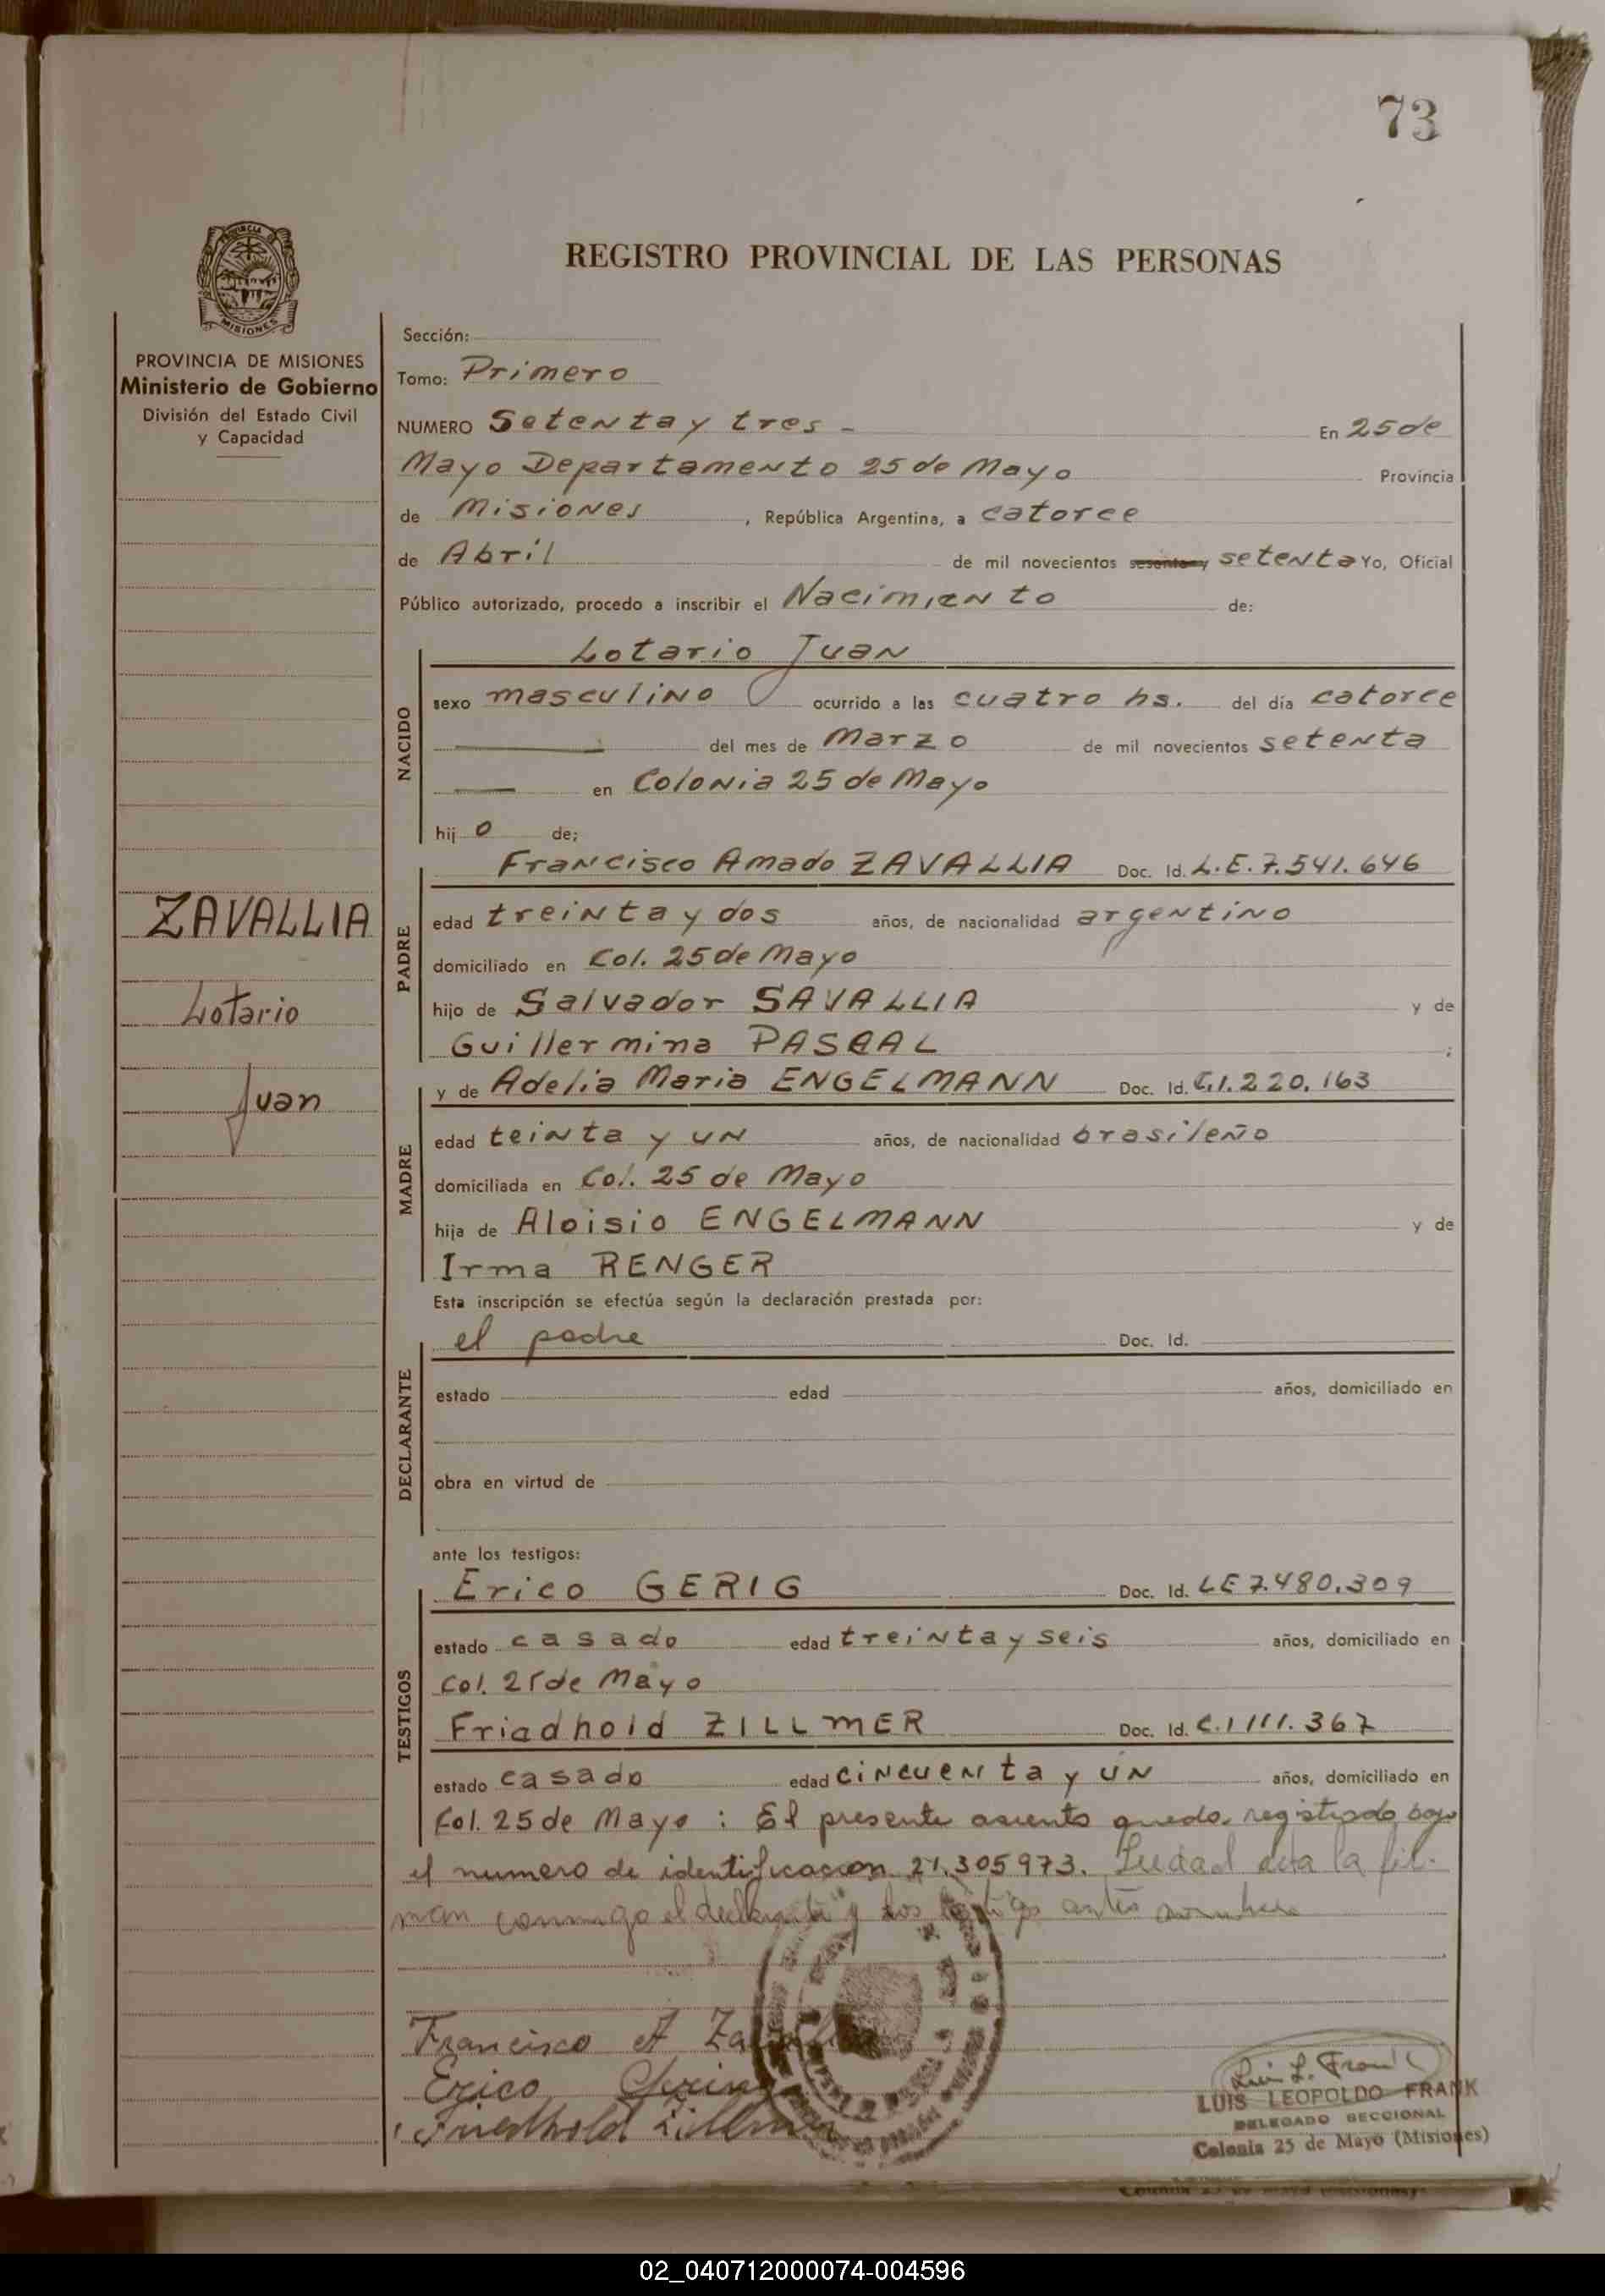 73
REGISTRO PROVINCIAL DE LAS PERSONAS
PROVINCIA DE MISIONES
Ministerio de Gobierno
División del Estado Civil
y Capacidad
ZAVALLIA
Lotario
Juan
Sección:
Tomo: Primero
NUMERO Setenta y tres - En 25 de
Mayo Departamento 25 de Mayo Provincia
de Misiones, República Argentina, a catorce
de Abril de mil novecientos sesenta y setenta Yo, Oficial
Público autorizado, procedo a inscribir el Nacimiento de:
Lotario Juan
NACIDO
sexo masculino ocurrido a las cuatro hs. del día catorce
del mes de Marzo de mil novecientos setenta
en Colonia 25 de Mayo
hij o de;
PADRE
Francisco Amado ZAVALLIA Doc. Id. L.E. 7.541.646
edad treinta y dos años, de nacionalidad argentino
domiciliado en Col. 25 de Mayo
hijo de Salvador SAVALLIA y de
Guillermina PASCAL ;
MADRE
y de Adelia Maria ENGELMANN Doc. Id. C.I. 220.163
edad teinta y un años, de nacionalidad brasileño
domiciliada en Col. 25 de Mayo
hija de Aloisio ENGELMANN y de
Irma RENGER
Esta inscripción se efectúa según la declaración prestada por:
DECLARANTE
el padre Doc. Id.
estado edad años, domiciliado en
obra en virtud de
ante los testigos:
TESTIGOS
Erico GERIG Doc. Id. LE 7.480.309
estado casado edad treinta y seis años, domiciliado en
Col. 25 de Mayo
Friadhold ZILLMER Doc. Id. C.I 111.367
estado casado edad cincuenta y un años, domiciliado en
Col. 25 de Mayo : El presente asiento queda registrado bajo
el numero de identificacion 21.305973. Leida el acta la fir-
man conmigo el declarante y los testigos antes
Francisco A
Erico Gerig
Friedhold Zillmer
Luis L. Frank
LUIS LEOPOLDO FRANK
DELEGADO SECCIONAL
Colonia 25 de Mayo (Misiones)
02_040712000074-004596